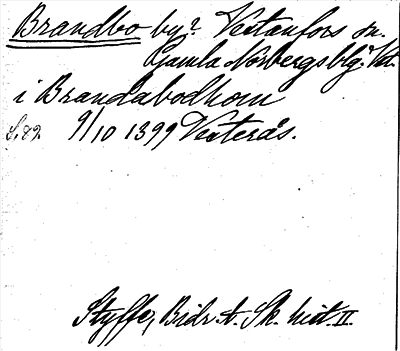 Brandbo by? Vestanfors sn.
Gamla Norbergs blg. Vstm.
i Brandabodhom
S. 82. 9/10 1399 Vesterås.
Styffe, Bidr. t. Sk. hist. II.